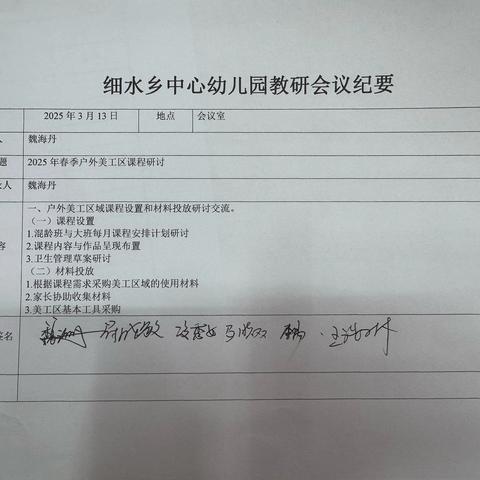 细水乡中心幼儿园教研会议纪要
2025年3月13日 地点 会议室
人 魏海丹
题 2025年春季户外美工区课程研讨
人 魏海丹
一、户外美工区域课程设置和材料投放研讨交流。
（一）课程设置
1.混龄班与大班每月课程安排计划研讨
2.课程内容与作品呈现布置
容 3.卫生管理草案研讨
（二）材料投放
1.根据课程需求采购美工区域的使用材料
2.家长协助收集材料
3.美工区基本工具采购
签名 魏海丹